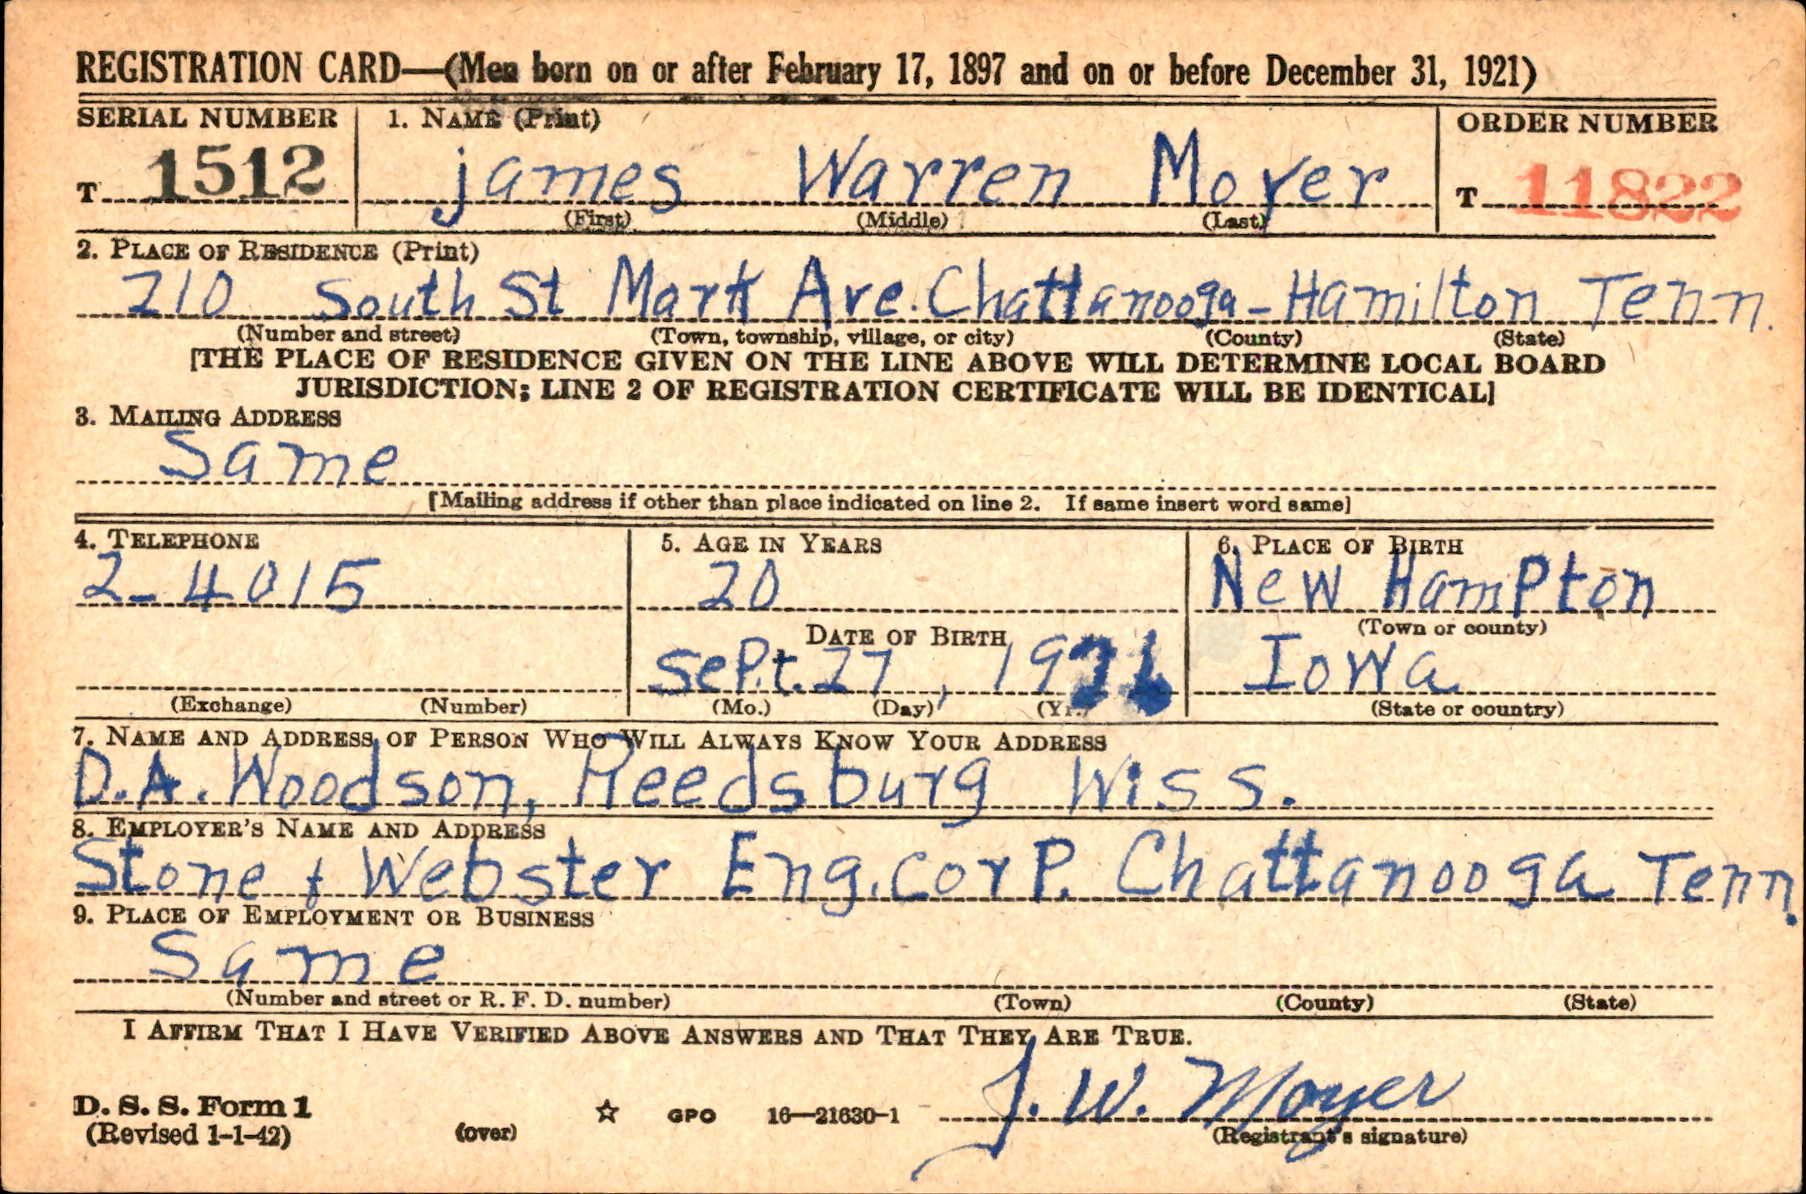 REGISTRATION CARD—(Men born on or after February 17, 1897 and on or before December 31, 1921)
SERIAL NUMBER 1. NAME (Print) ORDER NUMBER
T 1512 James Warren Moyer T 11822
(First) (Middle) (Last)
2. PLACE OF RESIDENCE (Print)
210 South St Mark Ave. Chattanooga - Hamilton Tenn.
(Number and street) (Town, township, village, or city) (County) (State)
[THE PLACE OF RESIDENCE GIVEN ON THE LINE ABOVE WILL DETERMINE LOCAL BOARD
JURISDICTION; LINE 2 OF REGISTRATION CERTIFICATE WILL BE IDENTICAL]
3. MAILING ADDRESS
Same
[Mailing address if other than place indicated on line 2. If same insert word same]
4. TELEPHONE 5. AGE IN YEARS 6. PLACE OF BIRTH
2-4015 20 New Hampton
DATE OF BIRTH (Town or county)
Sept. 27, 1921 Iowa
(Exchange) (Number) (Mo.) (Day) (Yr.) (State or country)
7. NAME AND ADDRESS OF PERSON WHO WILL ALWAYS KNOW YOUR ADDRESS
D.A. Woodson, Reedsburg Wiss.
8. EMPLOYER'S NAME AND ADDRESS
Stone & Webster Eng. Corp. Chattanooga Tenn.
9. PLACE OF EMPLOYMENT OR BUSINESS
Same
(Number and street or R. F. D. number) (Town) (County) (State)
I AFFIRM THAT I HAVE VERIFIED ABOVE ANSWERS AND THAT THEY ARE TRUE.
D. S. S. Form 1
(Revised 1-1-42) (over) ☆ GPO 16—21630-1 J. W. Moyer
(Registrant's signature)